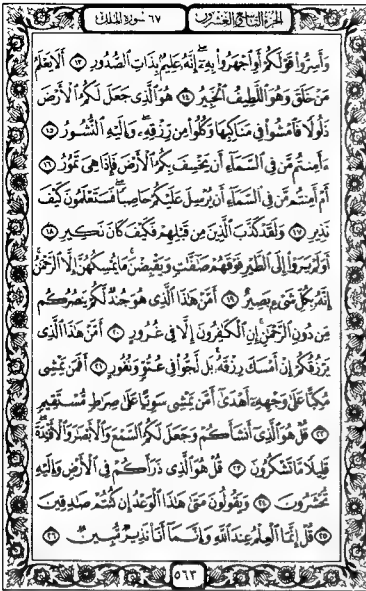 الجزء التاسع والعشرون ٦٧ سورة الملك
وَأَسِرُّوا۟ قَوْلَكُمْ أَوِ ٱجْهَرُوا۟ بِهِۦٓ ۖ إِنَّهُۥ عَلِيمٌۢ بِذَاتِ ٱلصُّدُورِ ١٣ أَلَا يَعْلَمُ
مَنْ خَلَقَ وَهُوَ ٱللَّطِيفُ ٱلْخَبِيرُ ١٤ هُوَ ٱلَّذِى جَعَلَ لَكُمُ ٱلْأَرْضَ
ذَلُولًا فَٱمْشُوا۟ فِى مَنَاكِبِهَا وَكُلُوا۟ مِن رِّزْقِهِۦ ۖ وَإِلَيْهِ ٱلنُّشُورُ ١٥
ءَأَمِنتُم مَّن فِى ٱلسَّمَآءِ أَن يَخْسِفَ بِكُمُ ٱلْأَرْضَ فَإِذَا هِىَ تَمُورُ ١٦
أَمْ أَمِنتُم مَّن فِى ٱلسَّمَآءِ أَن يُرْسِلَ عَلَيْكُمْ حَاصِبًا ۖ فَسَتَعْلَمُونَ كَيْفَ
نَذِيرِ ١٧ وَلَقَدْ كَذَّبَ ٱلَّذِينَ مِن قَبْلِهِمْ فَكَيْفَ كَانَ نَكِيرِ ١٨
أَوَلَمْ يَرَوْا۟ إِلَى ٱلطَّيْرِ فَوْقَهُمْ صَٰٓفَّٰتٍ وَيَقْبِضْنَ ۚ مَا يُمْسِكُهُنَّ إِلَّا ٱلرَّحْمَٰنُ ۚ
إِنَّهُۥ بِكُلِّ شَىْءٍۭ بَصِيرٌ ١٩ أَمَّنْ هَٰذَا ٱلَّذِى هُوَ جُندٌ لَّكُمْ يَنصُرُكُم
مِّن دُونِ ٱلرَّحْمَٰنِ ۚ إِنِ ٱلْكَٰفِرُونَ إِلَّا فِى غُرُورٍ ٢٠ أَمَّنْ هَٰذَا ٱلَّذِى
يَرْزُقُكُمْ إِنْ أَمْسَكَ رِزْقَهُۥ ۚ بَل لَّجُّوا۟ فِى عُتُوٍّ وَنُفُورٍ ٢١ أَفَمَن يَمْشِى
مُكِبًّا عَلَىٰ وَجْهِهِۦٓ أَهْدَىٰٓ أَمَّن يَمْشِى سَوِيًّا عَلَىٰ صِرَٰطٍ مُّسْتَقِيمٍ
٢٢ قُلْ هُوَ ٱلَّذِىٓ أَنشَأَكُمْ وَجَعَلَ لَكُمُ ٱلسَّمْعَ وَٱلْأَبْصَٰرَ وَٱلْأَفْـِٔدَةَ ۖ
قَلِيلًا مَّا تَشْكُرُونَ ٢٣ قُلْ هُوَ ٱلَّذِى ذَرَأَكُمْ فِى ٱلْأَرْضِ وَإِلَيْهِ
تُحْشَرُونَ ٢٤ وَيَقُولُونَ مَتَىٰ هَٰذَا ٱلْوَعْدُ إِن كُنتُمْ صَٰدِقِينَ
٢٥ قُلْ إِنَّمَا ٱلْعِلْمُ عِندَ ٱللَّهِ وَإِنَّمَآ أَنَا۠ نَذِيرٌ مُّبِينٌ ٢٦
٥٦٣